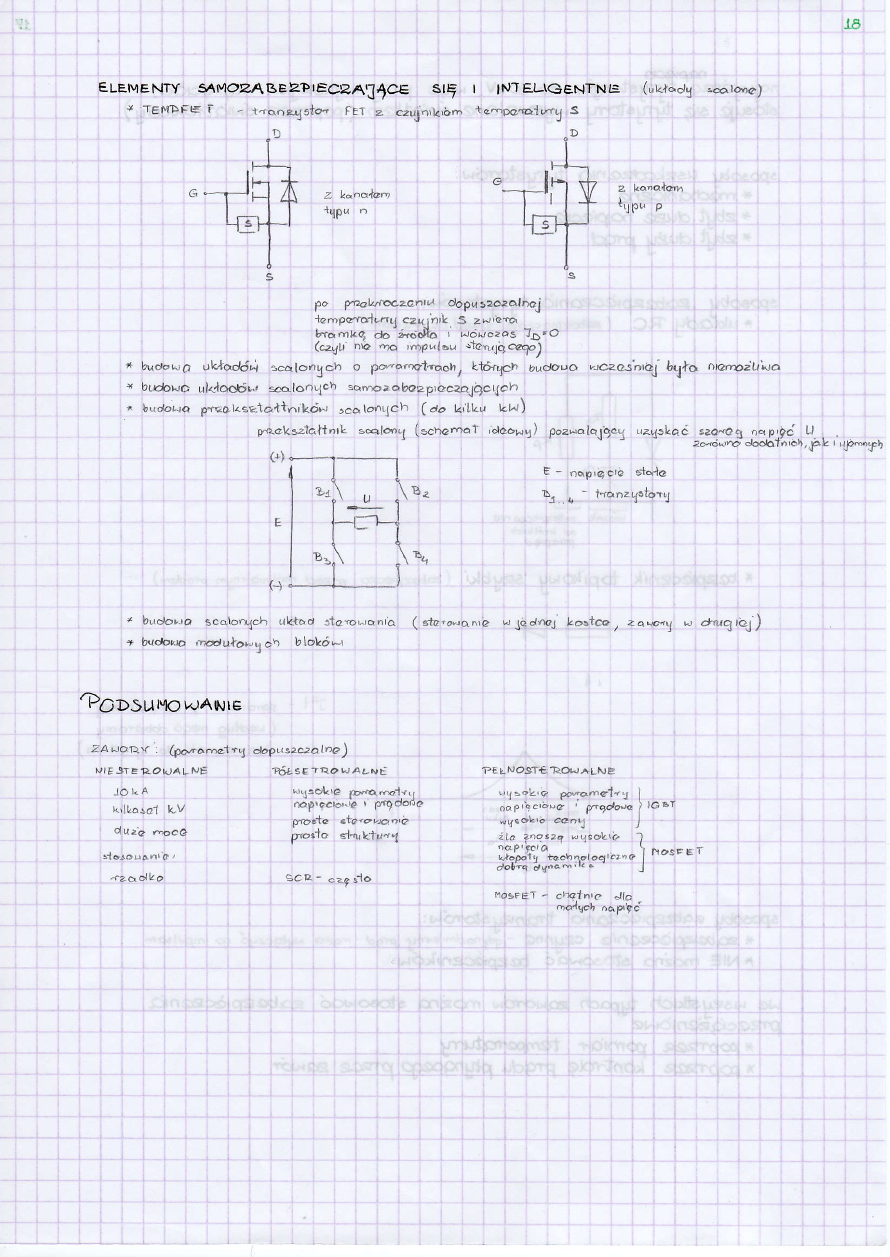 18
ELEMENTY SAMOZABEZPIECZAJĄCE SIĘ I INTELIGENTNE (układy scalone)
* TEMPFET - tranzystor FET z czujnikiem temperatury S
D
D
G
z kanałem
typu n
S
S
G
z kanałem
typu p
S
S
po przekroczeniu dopuszczalnej
temperatury czujnik S zwiera
bramkę do źródła i wówczas I_D=0
(czyli nie ma impulsu sterującego)
* budowa układów scalonych o parametrach, których budowa wcześniej była niemożliwa
* budowa układów scalonych samozabezpieczających
* budowa przekształtników scalonych (do kilku kW)
przekształtnik scalony (schemat ideowy) pozwalający uzyskać szereg napięć U
zarówno dodatnich, jak i ujemnych
(+)
B1
B2
U
E
B3
B4
(-)
E - napięcie stałe
B1...4 - tranzystory
* budowa scalonych układ sterowania (sterowanie w jednej kostce, zawory w drugiej)
* budowa modułowych bloków
PODSUMOWANIE
ZAWORY: (parametry dopuszczalne)
NIESTEROWALNE
10 kA
kilkaset kV
duże moce
stosowanie:
rzadko
PÓŁSETROWALNE
wysokie parametry
napięciowe i prądowe
proste sterowanie
prosta struktury
SCR - często
PEŁNOSTEROWALNE
wysokie parametry
napięciowe i prądowe
wysokie ceny
IGBT
źle znoszą wysokie
napięcia
kłopoty technologiczne
dobra dynamika
MOSFET
MOSFET - chętnie dla
małych napięć